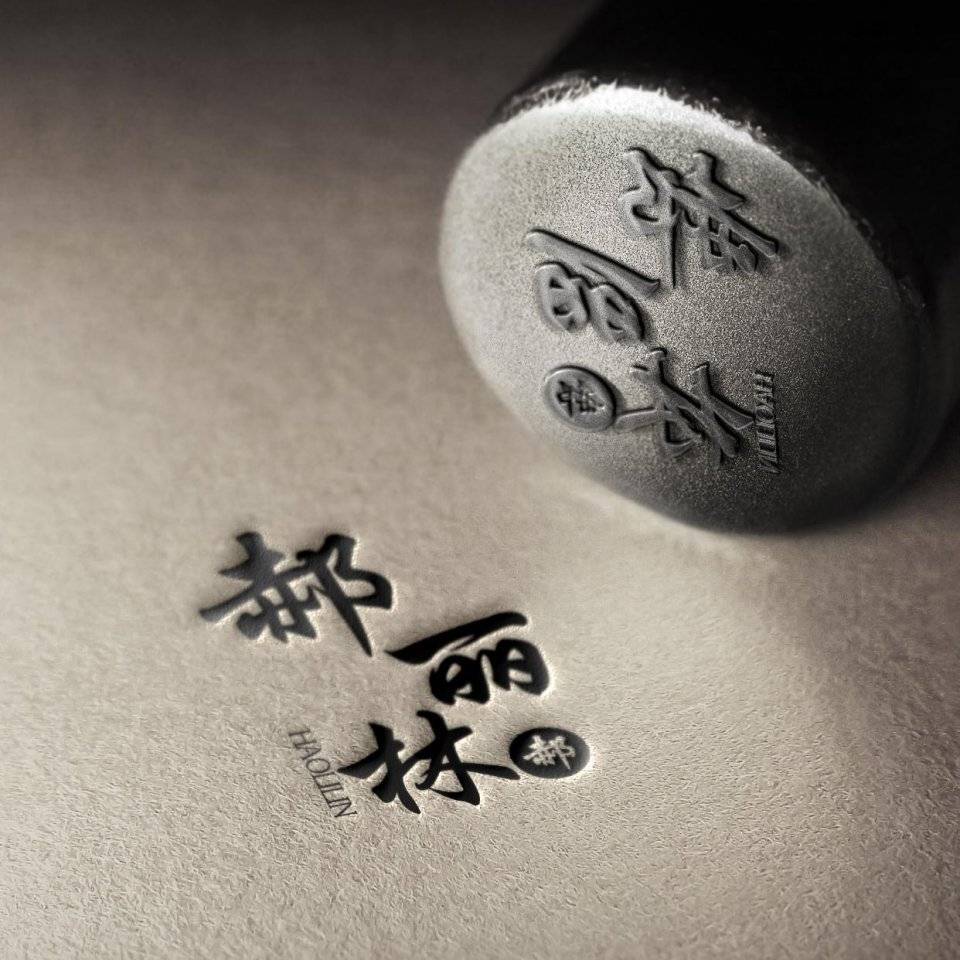 郝
丽
林
郝
HAOLILIN
郝
丽
林
郝
HAOLILIN